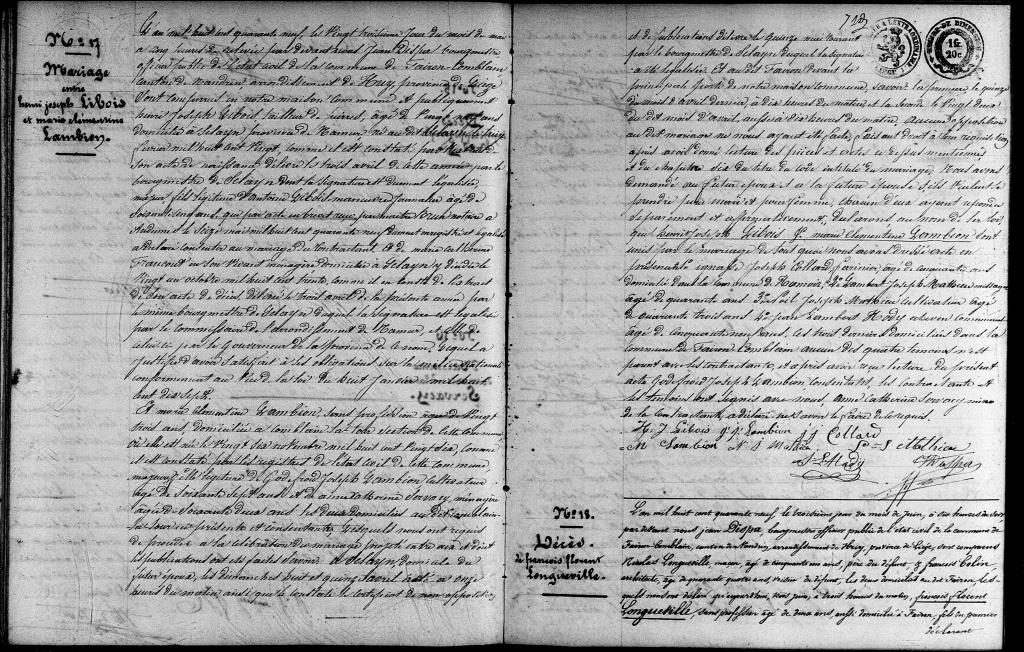 N° 17
Mariage
entre
henri joseph Libois
et marie clémentine
Lambion.
L'an mil huit cent quarante neuf, le vingt troisième jour du mois de mai
à cinq heures de relevée par devant nous Jean Dispa bourgmestre
officier public de l'état civil de la commune de Fairon Comblain
canton de Nandrin, arrondissement de Huy, province de Liége
Sont comparus en notre maison commune et publiquement
henri Joseph Libois tailleur de pierres, âgé de vingt neuf ans
domicilié à Sclayn province de Namur, né au dit Sclayn le
février mil huit cent vingt, comme il est constaté par
son acte de naissance délivré le trois avril de cette année par le
bourgmestre de Sclayn dont la signature est dument légalisée,
majeur, fils légitime d'antoine Libois manœuvre journalier âgé de
soixante cinq ans, qui par acte en brevet reçu par maître notaire à
Andenne le seize mai mil huit cent quarante neuf dument enregistré et légalisé
a déclaré consentir au mariage de contractant et de marie catherine
Francourt en son vivant ménagère domiciliée à Sclayn y décédée le
vingt un octobre mil huit cent trente, comme il en conste de l'extrait
de son acte de décès délivré le trois avril de la présente année par
le même bourgmestre de Sclayn duquel la signature est légalisée
par le commissaire de l'arrondissement de Namur, et celle de
celui-ci par le Gouverneur de la province de Lequel a
justifié d'avoir satisfait à ses obligations sur la
conformément au vœu de la loi du huit Janvier mil huit
cent dix sept.
Et marie clémentine Lambion, sans profession âgée de vingt
trois ans domiciliée à Comblain la tour section de cette commune
où elle est née le vingt six novembre mil huit cent vingt cinq, comme
il est constaté par les registres de l'état civil de cette commune
majeure, fille légitime de Godefroid Joseph Lambion cultivateur
âgé de soixante sept ans et de anne catherine Servais, ménagère
âgée de soixante deux ans, les deux domiciliés au dit Comblain
la tour ici présents et consentants, lesquels nous ont requis
de procéder à la célébration du mariage projeté entre eux et dont
les publications ont été faites savoir à Sclayn domicile du
futur époux, les dimanches huit et quinze avril à onze
heures du matin ainsi que le constate le certificat de non opposition
728
16
20c
et de publications délivré le quinze mai courant
par le bourgmestre de Sclayn duquel la signature
a été légalisée. Et au dit Fairon devant la
principale porte de notre maison commune, savoir la première le quinze
du mois d'avril dernier à dix heures du matin et la seconde le vingt deux
du dit mois d'avril aussi à dix heures du matin aucune opposition
au dit mariage ne nous ayant été faite, faisant droit à leur réquisition
après avoir donné lecture des pièces et actes ci dessus mentionnés
et du chapitre six du titre du code intitulé du mariage, Nous avons
demandé au futur époux et à la future épouse s'ils veulent se
prendre pour mari et pour femme, chacun d'eux ayant répondu
séparément et affirmativement, Déclarons au nom de la loi
que henri Joseph Libois & marie Clémentine Lambion sont
unis par le mariage de tout quoi nous avons dressé acte en
présence de 1° ignace Joseph Collard fermier, âgé de cinquante ans
domicilié dans la commune de Hamoir, 2° Lambert Joseph Mathieu
âgé de quarante ans, 3° Joseph Mathieu cultivateur âgé
de quarante trois ans, 4° jean Lambert Hardy échevin communal
âgé de cinquante neuf ans, les trois derniers domiciliés dans la
commune de Fairon Comblain aucun des quatre témoins n'est
parent avec les contractants, et après avoir reçu lecture du présent
acte Godefroid Joseph Lambion consentant, les contractants et
les témoins ont signé avec nous, anne catherine Servais mère
de la contractante, a déclaré ne savoir le faire de ce requis.
H. J Libois G. J. Lambion J J Collard
M C Lambion N J Mathieu J Mathieu
J L Hardy J Dispa
N° 18.
Décès.
de françois florent
Longueville.
L'an mil huit cent quarante neuf, le treizième jour du mois de juin, à six heures du soir
par devant nous jean Dispa bourgmestre officier public de l'état civil de la commune de
Fairon Comblain, canton de Nandrin, arrondissement de Huy, province de Liége, sont comparus
Nicolas Longueville, maçon, âgé de cinquante un ans, père du défunt, & francois Colin,
âgé de quarante quatre ans, voisin du défunt, les deux domiciliés au dit Fairon, les
quels nous ont déclaré qu'aujourd'hui, treize juin, à trois heures du matin, françois florent
Longueville, sans profession âgé de deux ans, aussi domicilié à Fairon, fils du premier
déclarant